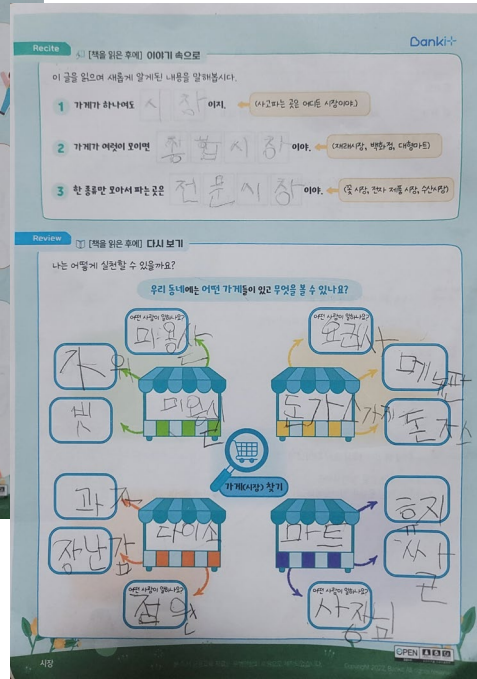 Recite
[책을 읽은 후에] 이야기 속으로
Danki+
이 글을 읽으며 새롭게 알게된 내용을 말해봅시다.
1 가게가 하나여도 시장 이지. (사고파는 곳은 어디든 시장이야.)
2 가게가 여럿이 모이면 종합시장 이야. (재래시장, 백화점, 대형마트)
3 한 종류만 모아서 파는 곳은 전문시장 이야. (꽃 시장, 전자 제품 시장, 수산시장)
Review
[책을 읽은 후에] 다시 보기
나는 어떻게 실천할 수 있을까요?
우리 동네에는 어떤 가게들이 있고 무엇을 볼 수 있나요?
어떤 사람이 일하나요?
미용사
가위
빗
미용실
어떤 사람이 일하나요?
요리사
메뉴판
돈가스
돈가스 가게
가게(시장) 찾기
과자
장난감
다이소
어떤 사람이 일하나요?
점원
마트
휴지
어떤 사람이 일하나요?
사장님
시장
OPEN